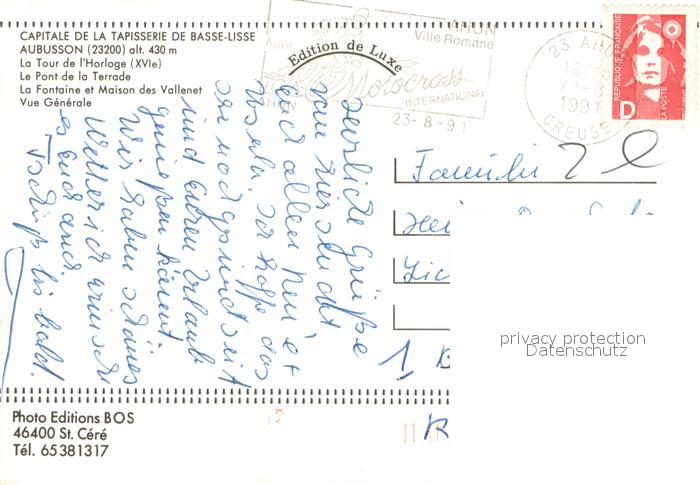 CAPITALE DE LA TAPISSERIE DE BASSE-LISSE
AUBUSSON (23200) alt. 430 m
La Tour de l'Horloge (XVIe)
Le Pont de la Terrade
La Fontaine et Maison des Vallenet
Vue Générale
Edition de Luxe
Août
AHUN
Ville Romane
Motocross
INTERNATIONAL
AHUN
23-8-91
23 AHUN
1991
CREUSE
REPUBLIQUE FRANÇAISE
D
LA POSTE
Herzliche Grüße
von hier sendet
Euch allen
Ich hoffe das
Ihr noch gesund seit
und Euren Urlaub
genießen könnt.
Wir haben schönes
Wetter ich wünsche
es Euch auch.
Tschüß bis bald.
Familie
1
privacy protection
Datenschutz
Photo Editions BOS
46400 St. Céré
Tél. 65381317
17
11